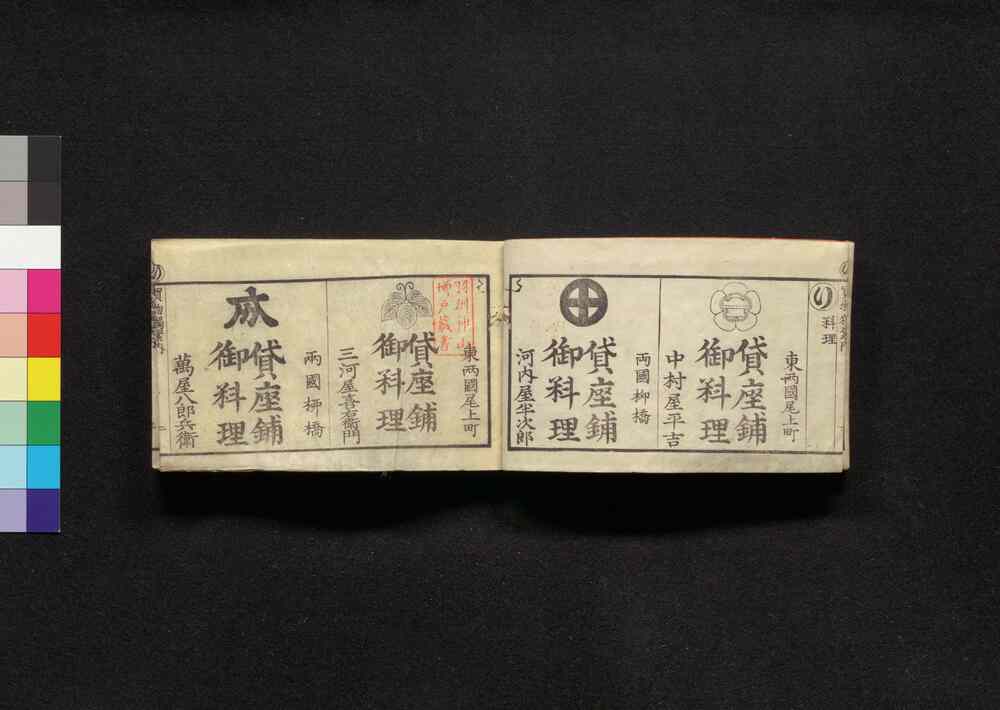 り
料理
東両國尾上町
貸座鋪
御料理
中村屋平吉
両國柳橋
貸座鋪
御料理
河内屋半次郎
東両國尾上町
貸座鋪
御料理
三河屋喜右衛門
両國柳橋
成
貸座鋪
御料理
萬屋八郎兵衛